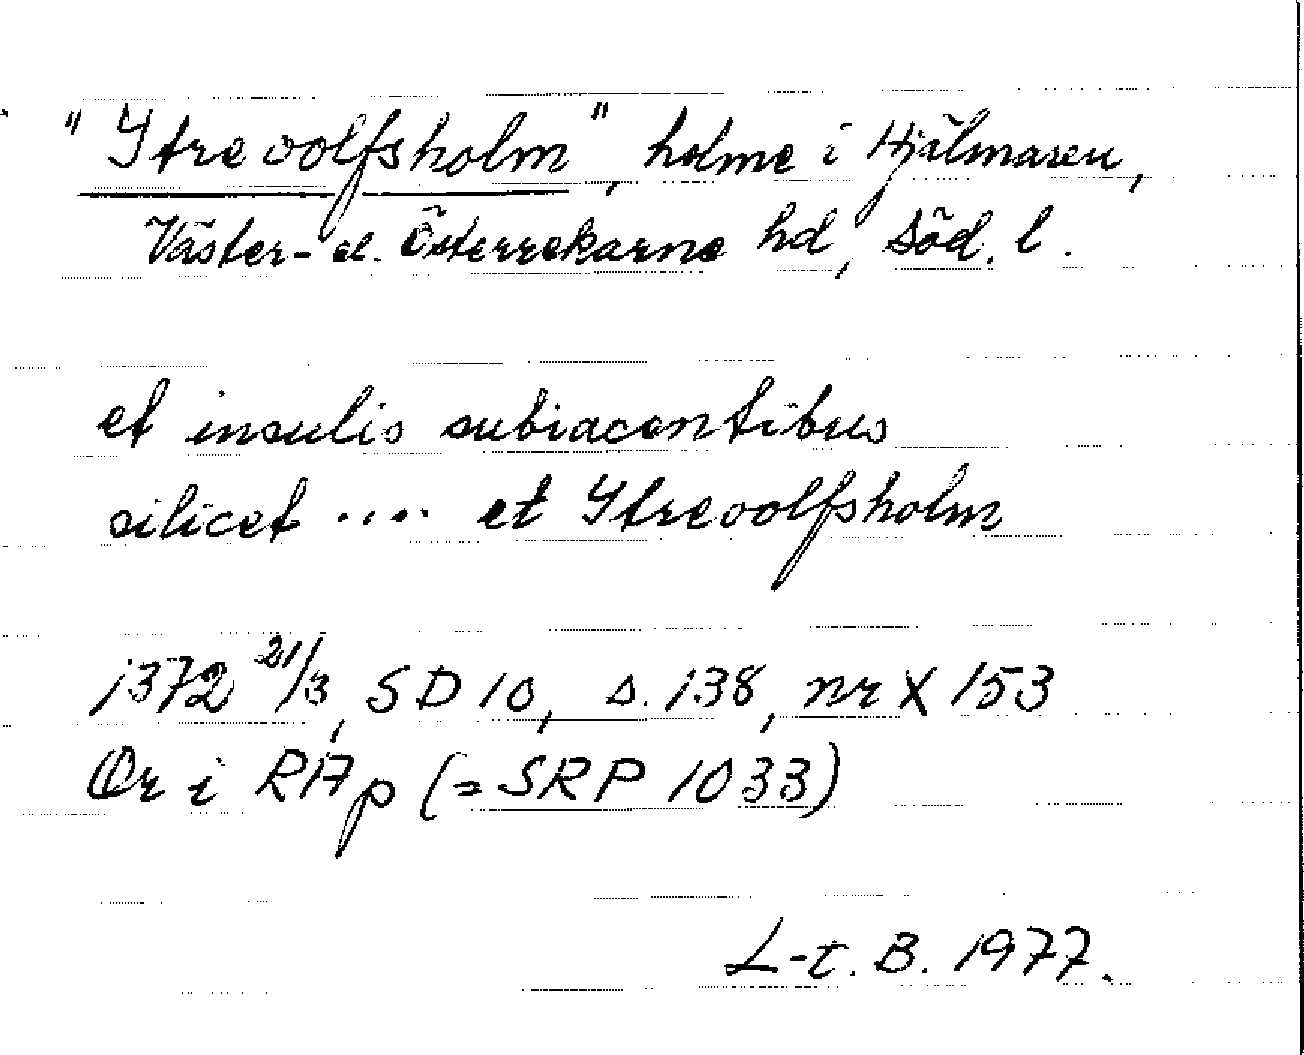 "Ytrevolfsholm", holme i Hjälmaren,
Väster- el. Österrekarne hd, Söd. l.
et insulis subiacentibus
silicet .... et Ytrevolfsholm
1372 21/3, SD 10, s. 138, nr X 153
Or i RAp (= SRP 1033)
L-t. B. 1977.